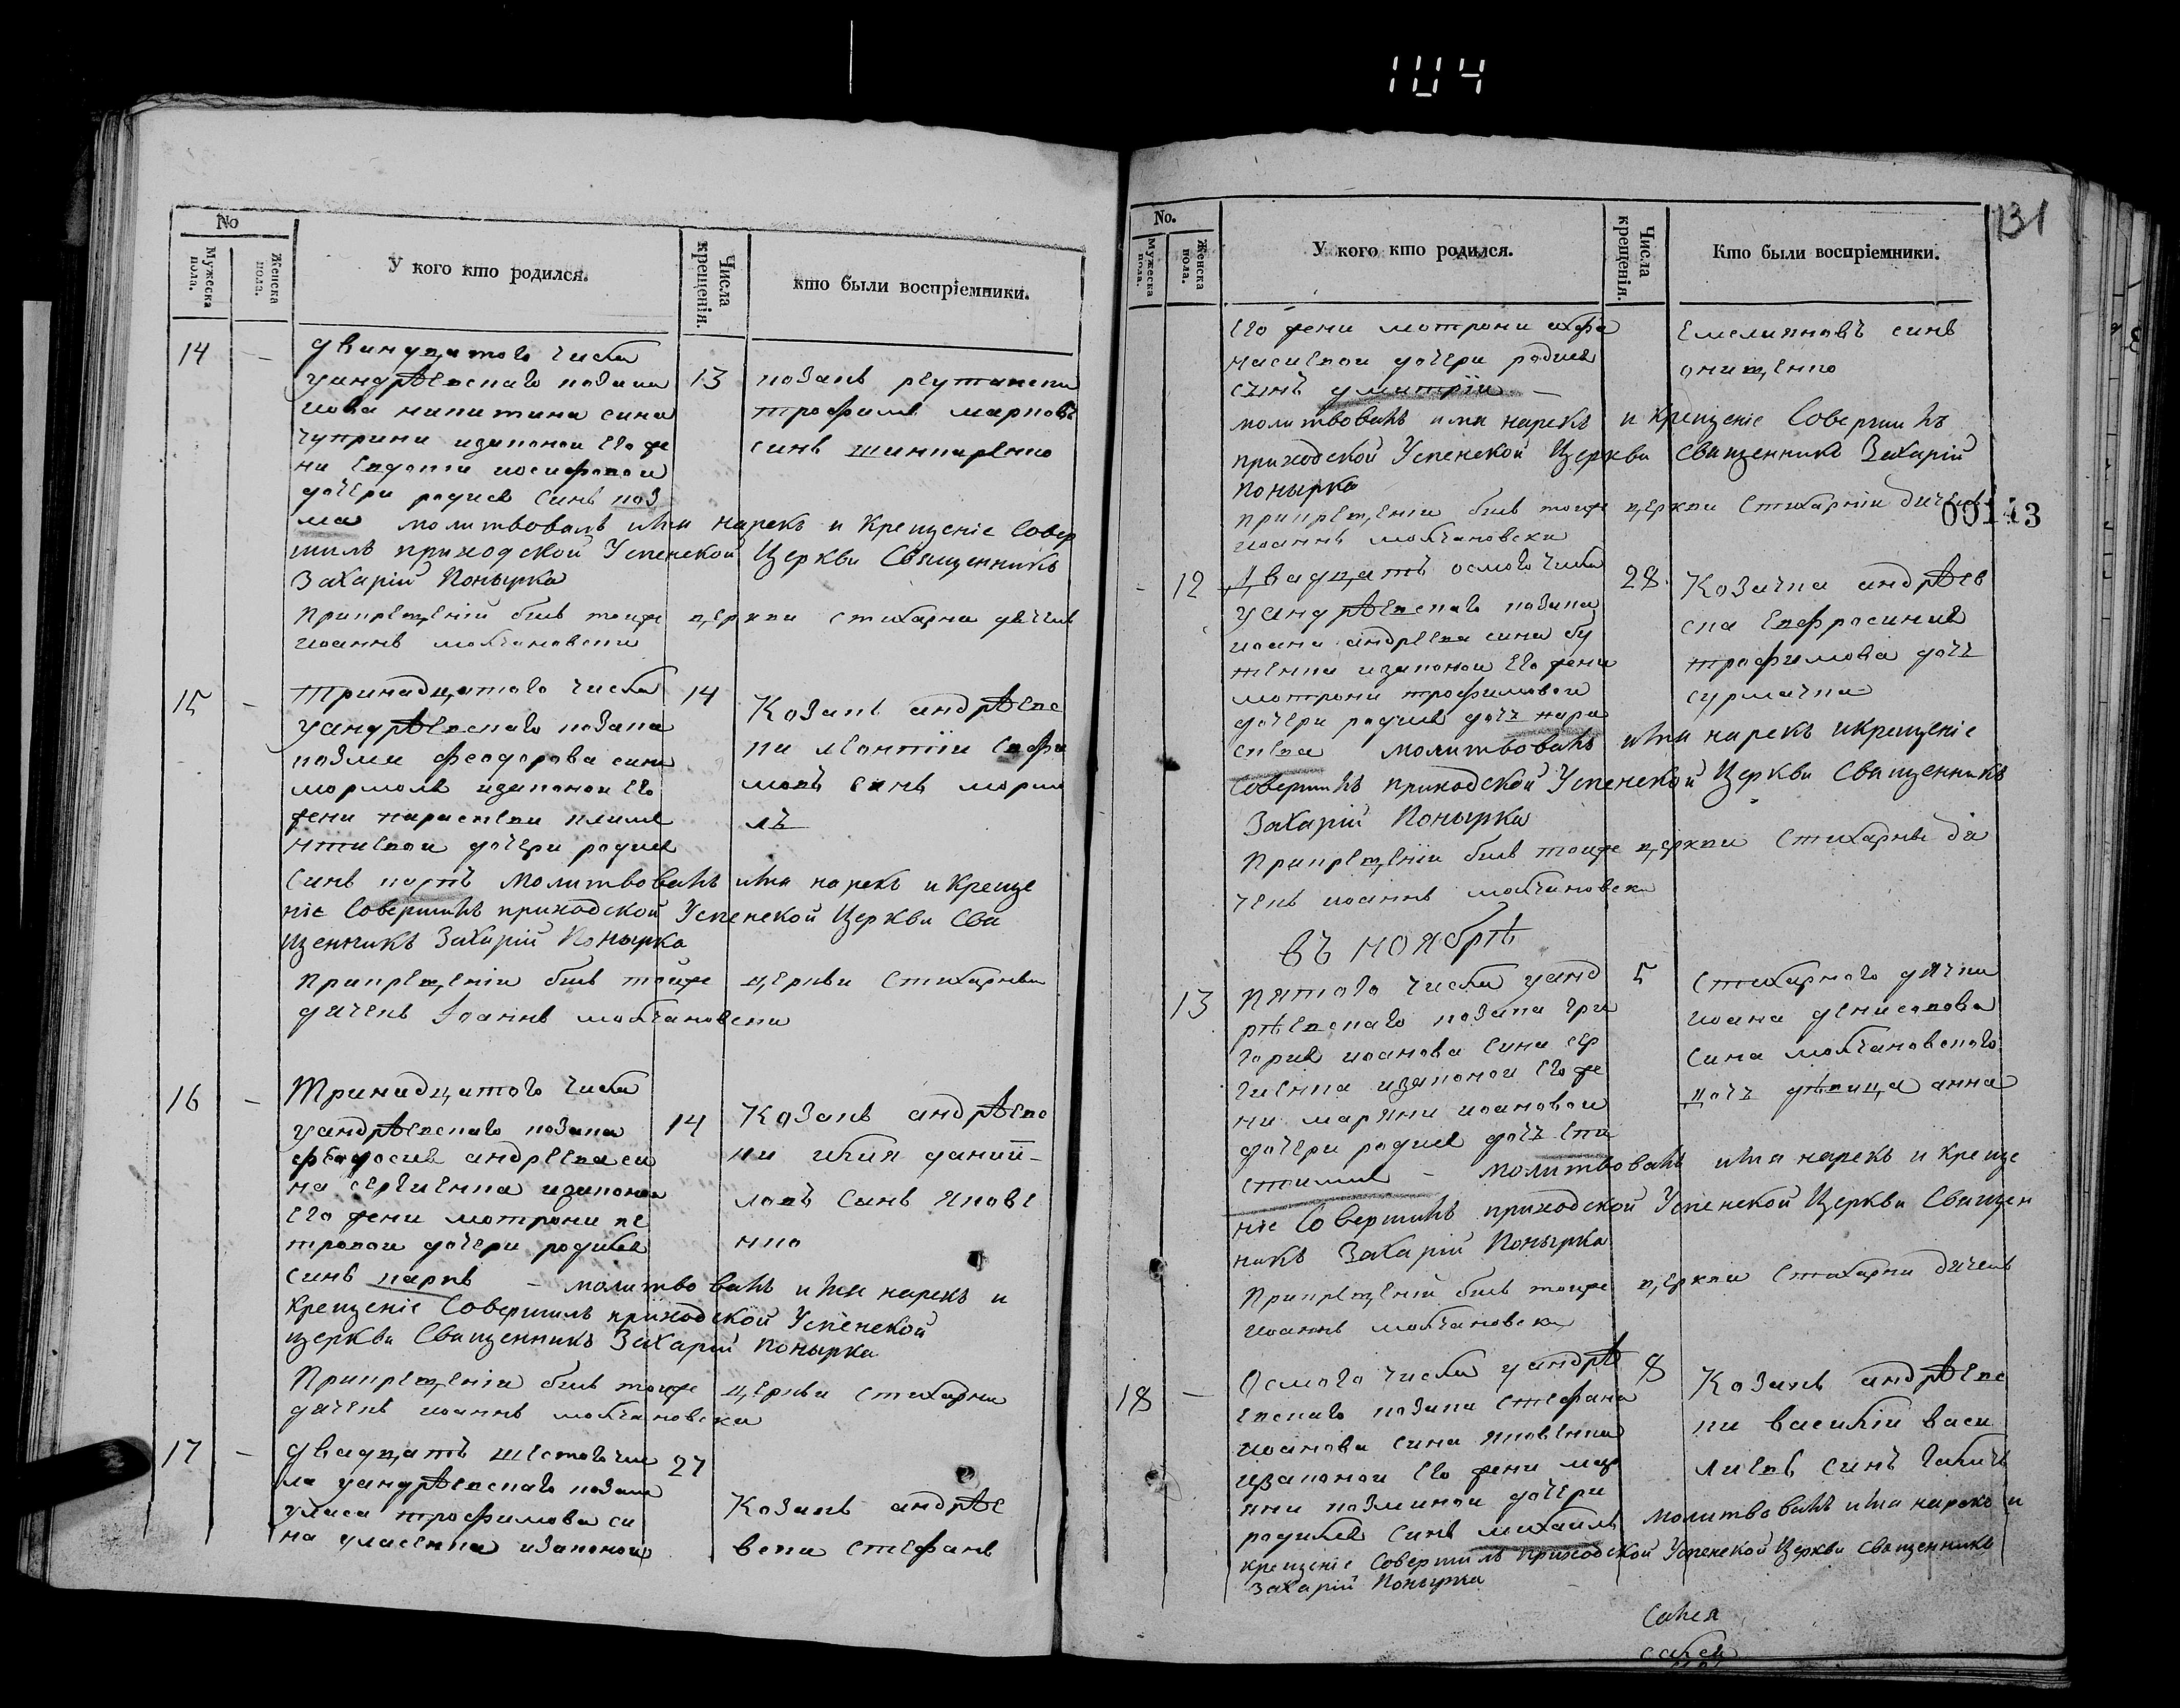 104
No
Мужеска пола.
Женска пола.
У кого кто родился.
Числа крещенія.
кто были воспріемники.
14
двандцатого числа
уандрѣевскаго козака
иова никитина сина
чуприни изаконои его же
ни евдокіи иосифовои
дочери родився синъ коз
ма молитвовалъ имя нарекъ и крещеніе совер
шилъ приходской Успенской Церкви Священникъ
Захарій Понырка
Прикрещеніи билъ тоиже церкви стихарни дячекъ
иоаннъ молчановски
13
козакъ реутински
трофимъ марковъ
синъ шинкаренко
15
тринадцатого числа
уандрѣевскаго козака
козми феодорова сина
мормоля изаконои его
жени параскеви климе
нтиевои дочери родился
синъ карпъ молитвовалъ имя нарекъ и креще
ніе совершилъ приходской Успенской Церкви Свя
щенникъ Захарій Понырка
Прикрещеніи билъ тоиже церкви стихарни
дячекъ Іоаннъ молчановски
14
Козакъ андрѣевс
ки леонтіи евфи
мовъ синъ мормо
лъ
16
Тринадцатого числа
уандрѣевскаго козака
феодосия андреева си
на сергиенка изаконои
его жени мотрони пе
тровои дочери родился
синъ карпъ молитвовалъ имя нарекъ и
крещеніе совершилъ приходской Успенской
церкви Священникъ Захарій Понырка
Прикрещеніи билъ тоиже церкви стихарни
дячекъ иоаннъ молчановски
14
Козакъ андрѣевс
ки илия дании-
ловъ синъ якове
нко
17
двадцать шестого чис
ла уандрѣевскаго козака
уласа трофимова си
на уласенка изаконои
27
Козакъ андрѣе
вски стефанъ
131
No.
Мужеска пола.
Женска пола.
У кого кто родился.
Числа крещенія.
Кто были воспріемники.
его жени мотрони афа
насиевои дочери родился
сынъ димитріи
молитвовалъ имя нарекъ и крещеніе совершилъ
приходской Успенской Церкви священникъ Захарій
Понырка
прикрещеніи билъ тоиже церкви стихарніи дячекъ
иоаннъ молчановски
Емелияновъ синъ
онищенко
12
двадцать осмого числа
уандрѣевскаго козака
иоана андреева сина бу
тенка изаконои его жени
мотрони трофимовои
дочери родился дочъ пара
скева молитвовалъ имя нарекъ и крещеніе
совершилъ приходской Успенской Церкви Священникъ
Захарій Понырка
Прикрещеніи билъ тоиже церкви стихарнъ дя
чекъ иоаннъ молчановски
28
Козачка андрѣев
ска евфросиния
трофимова дочъ
сурмачка
въ ноябрѣ
13
Пятого числа уанд
рѣевскаго козака гри
гория иоанова сина сер
гиенка изаконои его же
ни маряни иоановои
дочери родися дочъ ека
молитвовалъ имя нарекъ и креще
ніе совершилъ приходской Успенской Церкви Священ
никъ Захарій Понырка
Прикрещеніи билъ тоиже церкви стихарни дячекъ
иоаннъ молчановски
5
Стихарного дячка
иоана денисовова
сина молчановского
дочъ дѣвица анна
18
Осмого числа уандрѣ
евскаго козака стефана
иоанова сина яковенка
изаконои его жени мар
яни козминои дочери
родился синъ михаилъ молитвовалъ имя нарекъ и
крещеніе совершилъ приходской Успенской Церкви священникъ
Захарій Понырка
8
Козакъ андрѣевс
ки василіи васи
лиевъ синъ галичъ